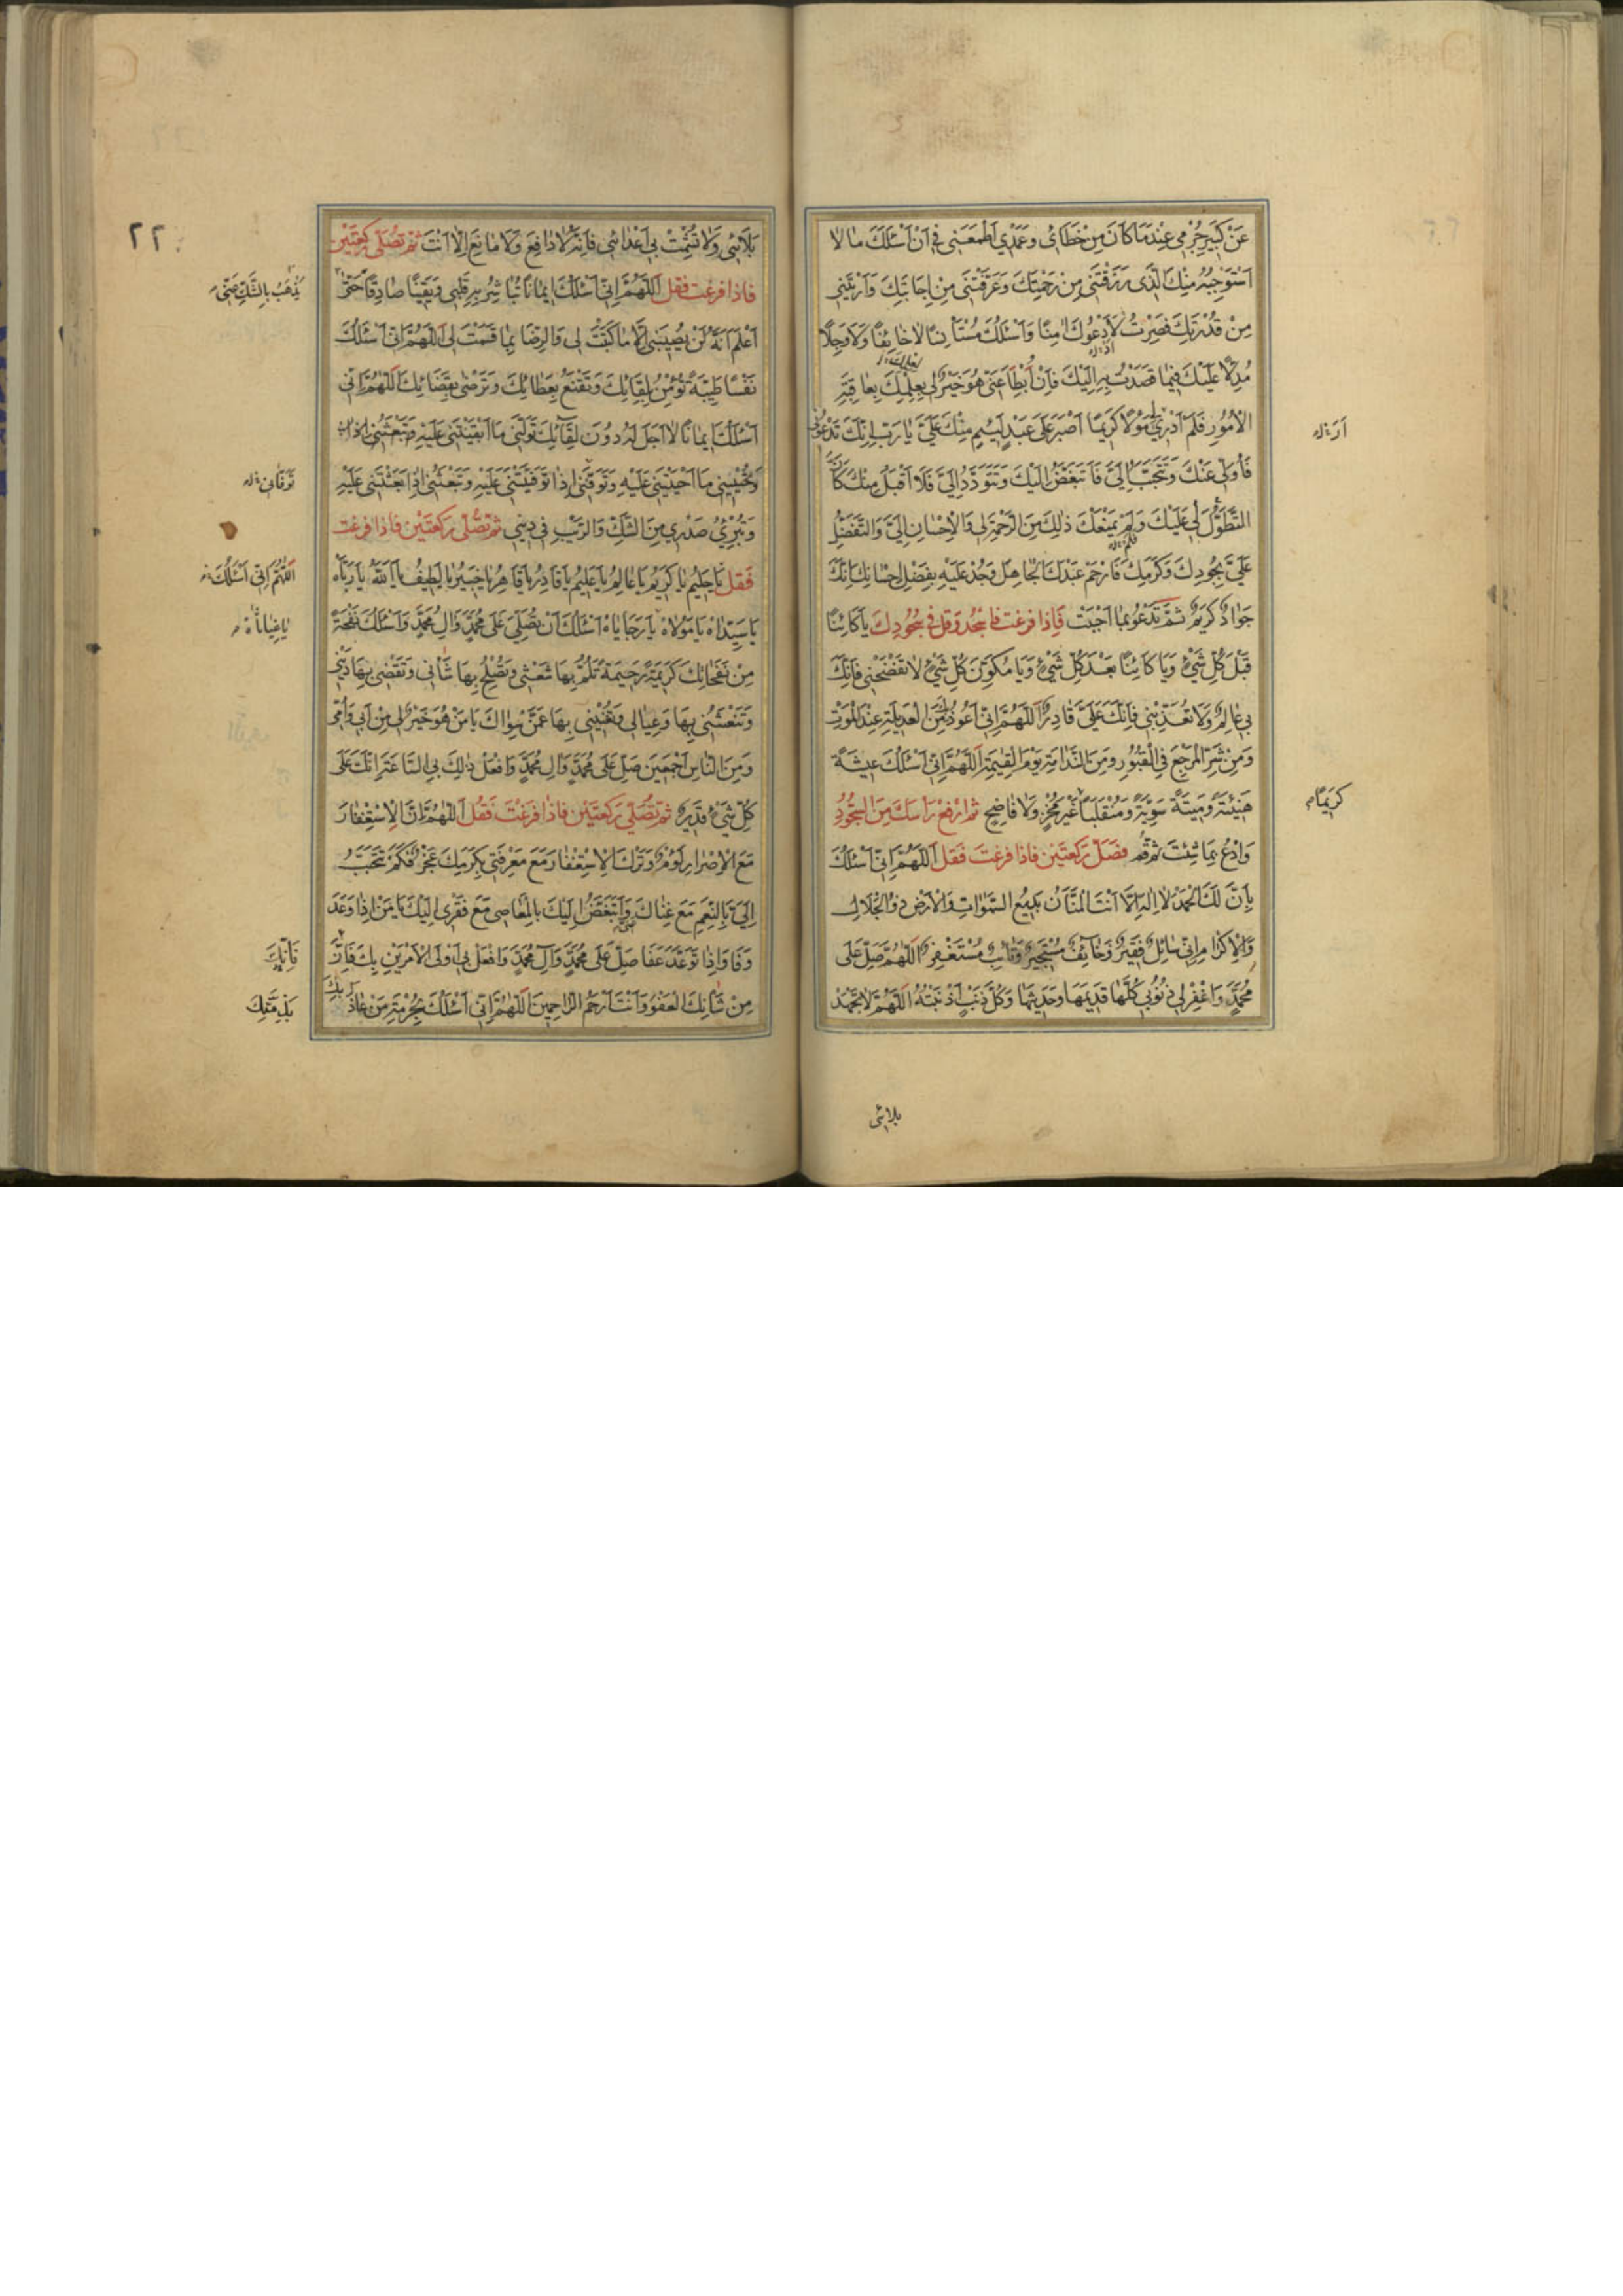 عَنْ كَبِيرِ جُرْمِي عِنْدَ مَا كَانَ مِنْ خَطَايَ وَعَمْدِي اَطْمَعَنِي فِي اَنْ اَسْئَلَكَ مَا لَا
اَسْتَوْجِبُهُ مِنْكَ الَّذِي رَزَقْتَنِي مِنْ رَحْمَتِكَ وَعَرَّفْتَنِي مِنْ اِجَابَتِكَ وَاَرَيْتَنِي
مِنْ قُدْرَتِكَ فَصِرْتُ اَدْعُوكَ اٰمِنًا وَاَسْئَلُكَ مُسْتَأْنِسًا لَا خَائِفًا وَلَا وَجِلًا
مُدِلًّا عَلَيْكَ فِيمَا قَصَدْتُ بِهِ اِلَيْكَ فَاِنْ اَبْطَأَ عَنِّي هُوَ خَيْرٌ لِي لِعِلْمِكَ بِعَاقِبَةِ
الْاُمُورِ فَلَمْ اَرَ مَوْلًا كَرِيمًا اَصْبَرَ عَلَى عَبْدٍ لَئِيمٍ مِنْكَ عَلَيَّ يَا رَبِّ اِنَّكَ تَدْعُونِي
فَاُوَلِّي عَنْكَ وَتَتَحَبَّبُ اِلَيَّ فَاَتَبَغَّضُ اِلَيْكَ وَتَتَوَدَّدُ اِلَيَّ فَلَا اَقْبَلُ مِنْكَ كَاَنَّ
التَّطَوُّلَ لِي عَلَيْكَ وَلَمْ يَمْنَعْكَ ذٰلِكَ مِنَ الرَّحْمَةِ لِي وَالْاِحْسَانِ اِلَيَّ وَالتَّفَضُّلِ
عَلَيَّ بِجُودِكَ وَكَرَمِكَ فَارْحَمْ عَبْدَكَ الْجَاهِلَ وَجُدْ عَلَيْهِ بِفَضْلِ اِحْسَانِكَ اِنَّكَ
جَوَادٌ كَرِيمٌ ثُمَّ تَدْعُو بِمَا اَحْبَبْتَ فَاِذَا فَرَغْتَ فَاسْجُدْ وَقُلْ فِي سُجُودِكَ يَا كَائِنًا
قَبْلَ كُلِّ شَيْءٍ وَيَا كَائِنًا بَعْدَ كُلِّ شَيْءٍ وَيَا مُكَوِّنَ كُلِّ شَيْءٍ لَا تَفْضَحْنِي فَاِنَّكَ
بِي عَالِمٌ وَلَا تُعَذِّبْنِي فَاِنَّكَ عَلَيَّ قَادِرٌ اَللّٰهُمَّ اِنِّي اَعُوذُ بِكَ مِنَ الْعَدِيلَةِ عِنْدَ الْمَوْتِ
وَمِنْ شَرِّ الْمَرْجَعِ فِي الْقُبُورِ وَمِنَ النَّدَامَةِ يَوْمَ الْقِيٰمَةِ اَللّٰهُمَّ اِنِّي اَسْئَلُكَ عِيشَةً
هَنِيئَةً وَمِيتَةً سَوِيَّةً وَمُنْقَلَبًا غَيْرَ مُخْزٍ وَلَا فَاضِحٍ ثُمَّ ارْفَعْ رَأْسَكَ مِنَ السُّجُودِ
وَادْعُ بِمَا شِئْتَ ثُمَّ قُمْ فَصَلِّ رَكْعَتَيْنِ فَاِذَا فَرَغْتَ فَقُلْ اَللّٰهُمَّ اِنِّي اَسْئَلُكَ
بِاَنَّ لَكَ الْحَمْدَ لَا اِلٰهَ اِلَّا اَنْتَ الْمَنَّانُ بَدِيعُ السَّمٰوَاتِ وَالْاَرْضِ ذُو الْجَلَالِ
وَالْاِكْرَامِ اِنِّي سَائِلٌ فَقِيرٌ وَخَائِفٌ مُسْتَجِيرٌ وَتَائِبٌ مُسْتَغْفِرٌ اَللّٰهُمَّ صَلِّ عَلَى
مُحَمَّدٍ وَاغْفِرْ لِي ذُنُوبِي كُلَّهَا قَدِيمَهَا وَحَدِيثَهَا وَكُلَّ ذَنْبٍ اَذْنَبْتُهُ اَللّٰهُمَّ لَا تَجْهَدْ
كَرِيمًا
بلائی
٢٢
بَلَائِي وَلَا تُشْمِتْ بِي اَعْدَائِي فَاِنَّهُ لَا دَافِعَ وَلَا مَانِعَ اِلَّا اَنْتَ ثُمَّ تُصَلِّي رَكْعَتَيْنِ
فَاِذَا فَرَغْتَ فَقُلْ اَللّٰهُمَّ اِنِّي اَسْئَلُكَ اِيمَانًا تُبَاشِرُ بِهِ قَلْبِي وَيَقِينًا صَادِقًا حَتّٰى
اَعْلَمَ اَنَّهُ لَنْ يُصِيبَنِي اِلَّا مَا كَتَبْتَ لِي وَالرِّضَا بِمَا قَسَمْتَ لِي اَللّٰهُمَّ اِنِّي اَسْئَلُكَ
نَفْسًا طَيِّبَةً تُؤْمِنُ بِلِقَائِكَ وَتَقْنَعُ بِعَطَائِكَ وَتَرْضَى بِقَضَائِكَ اَللّٰهُمَّ اِنِّي
اَسْئَلُكَ اِيمَانًا لَا اَجَلَ لَهُ دُونَ لِقَائِكَ تَوَلَّنِي مَا اَبْقَيْتَنِي عَلَيْهِ
وَتُحْيِينِي مَا اَحْيَيْتَنِي عَلَيْهِ وَتَوَفَّنِي اِذَا تَوَفَّيْتَنِي عَلَيْهِ وَتَبْعَثُنِي اِذَا بَعَثْتَنِي عَلَيْهِ
وَتُبْرِئُ صَدْرِي مِنَ الشَّكِّ وَالرَّيْبِ فِي دِينِي ثُمَّ تُصَلِّي رَكْعَتَيْنِ فَاِذَا فَرَغْتَ
فَقُلْ يَا حَلِيمُ يَا كَرِيمُ يَا عَالِمُ يَا عَلِيمُ يَا قَادِرُ يَا قَاهِرُ يَا خَبِيرُ يَا لَطِيفُ يَا اَللّٰهُ يَا رَبَّاهُ
يَا سَيِّدَاهُ يَا مَوْلَاهُ يَا رَجَايَاهُ اَسْئَلُكَ اَنْ تُصَلِّيَ عَلَى مُحَمَّدٍ وَاٰلِ مُحَمَّدٍ وَاَسْئَلُكَ نَفْحَةً
مِنْ نَفَحَاتِكَ كَرِيمَةً رَحِيمَةً تَلُمُّ بِهَا شَعْثِي وَتُصْلِحُ بِهَا شَأْنِي وَتَقْضِي بِهَا دَيْنِي
وَتَنْعَشُنِي بِهَا وَعِيَالِي وَتُغْنِينِي بِهَا عَمَّنْ سِوَاكَ يَا مَنْ هُوَ خَيْرٌ لِي مِنْ اَبِي وَاُمِّي
وَمِنَ النَّاسِ اَجْمَعِينَ صَلِّ عَلَى مُحَمَّدٍ وَاٰلِ مُحَمَّدٍ وَافْعَلْ ذٰلِكَ بِي السَّاعَةَ اِنَّكَ عَلَى
كُلِّ شَيْءٍ قَدِيرٌ ثُمَّ تُصَلِّي رَكْعَتَيْنِ فَاِذَا فَرَغْتَ فَقُلْ اَللّٰهُمَّ اِنَّ الْاِسْتِغْفَارَ
مَعَ الْاِصْرَارِ لُؤْمٌ وَتَرْكَ الْاِسْتِغْفَارِ مَعَ مَعْرِفَتِي بِكَرَمِكَ عَجْزٌ فَكَمْ تَتَحَبَّبُ
اِلَيَّ بِالنِّعَمِ مَعَ غِنَاكَ وَاَتَبَغَّضُ اِلَيْكَ بِالْمَعَاصِي مَعَ فَقْرِي اِلَيْكَ يَا مَنْ اِذَا وَعَدَ
وَفَا وَاِذَا تَوَعَّدَ عَفَا صَلِّ عَلَى مُحَمَّدٍ وَاٰلِ مُحَمَّدٍ وَافْعَلْ بِي اَوْلَى الْاَمْرَيْنِ بِكَ فَاِنَّ
مِنْ شَأْنِكَ الْعَفْوَ وَاَنْتَ اَرْحَمُ الرَّاحِمِينَ اَللّٰهُمَّ اِنِّي اَسْئَلُكَ بِحُرْمَةِ مَنْ عَاذَ بِكَ
يَذْهَبُ بِالشَّكِّ عَنِّي
اَللّٰهُمَّ اِنِّي اَسْئَلُكَ
يَا غِيَاثَاهُ
بِذِمَّتِكَ